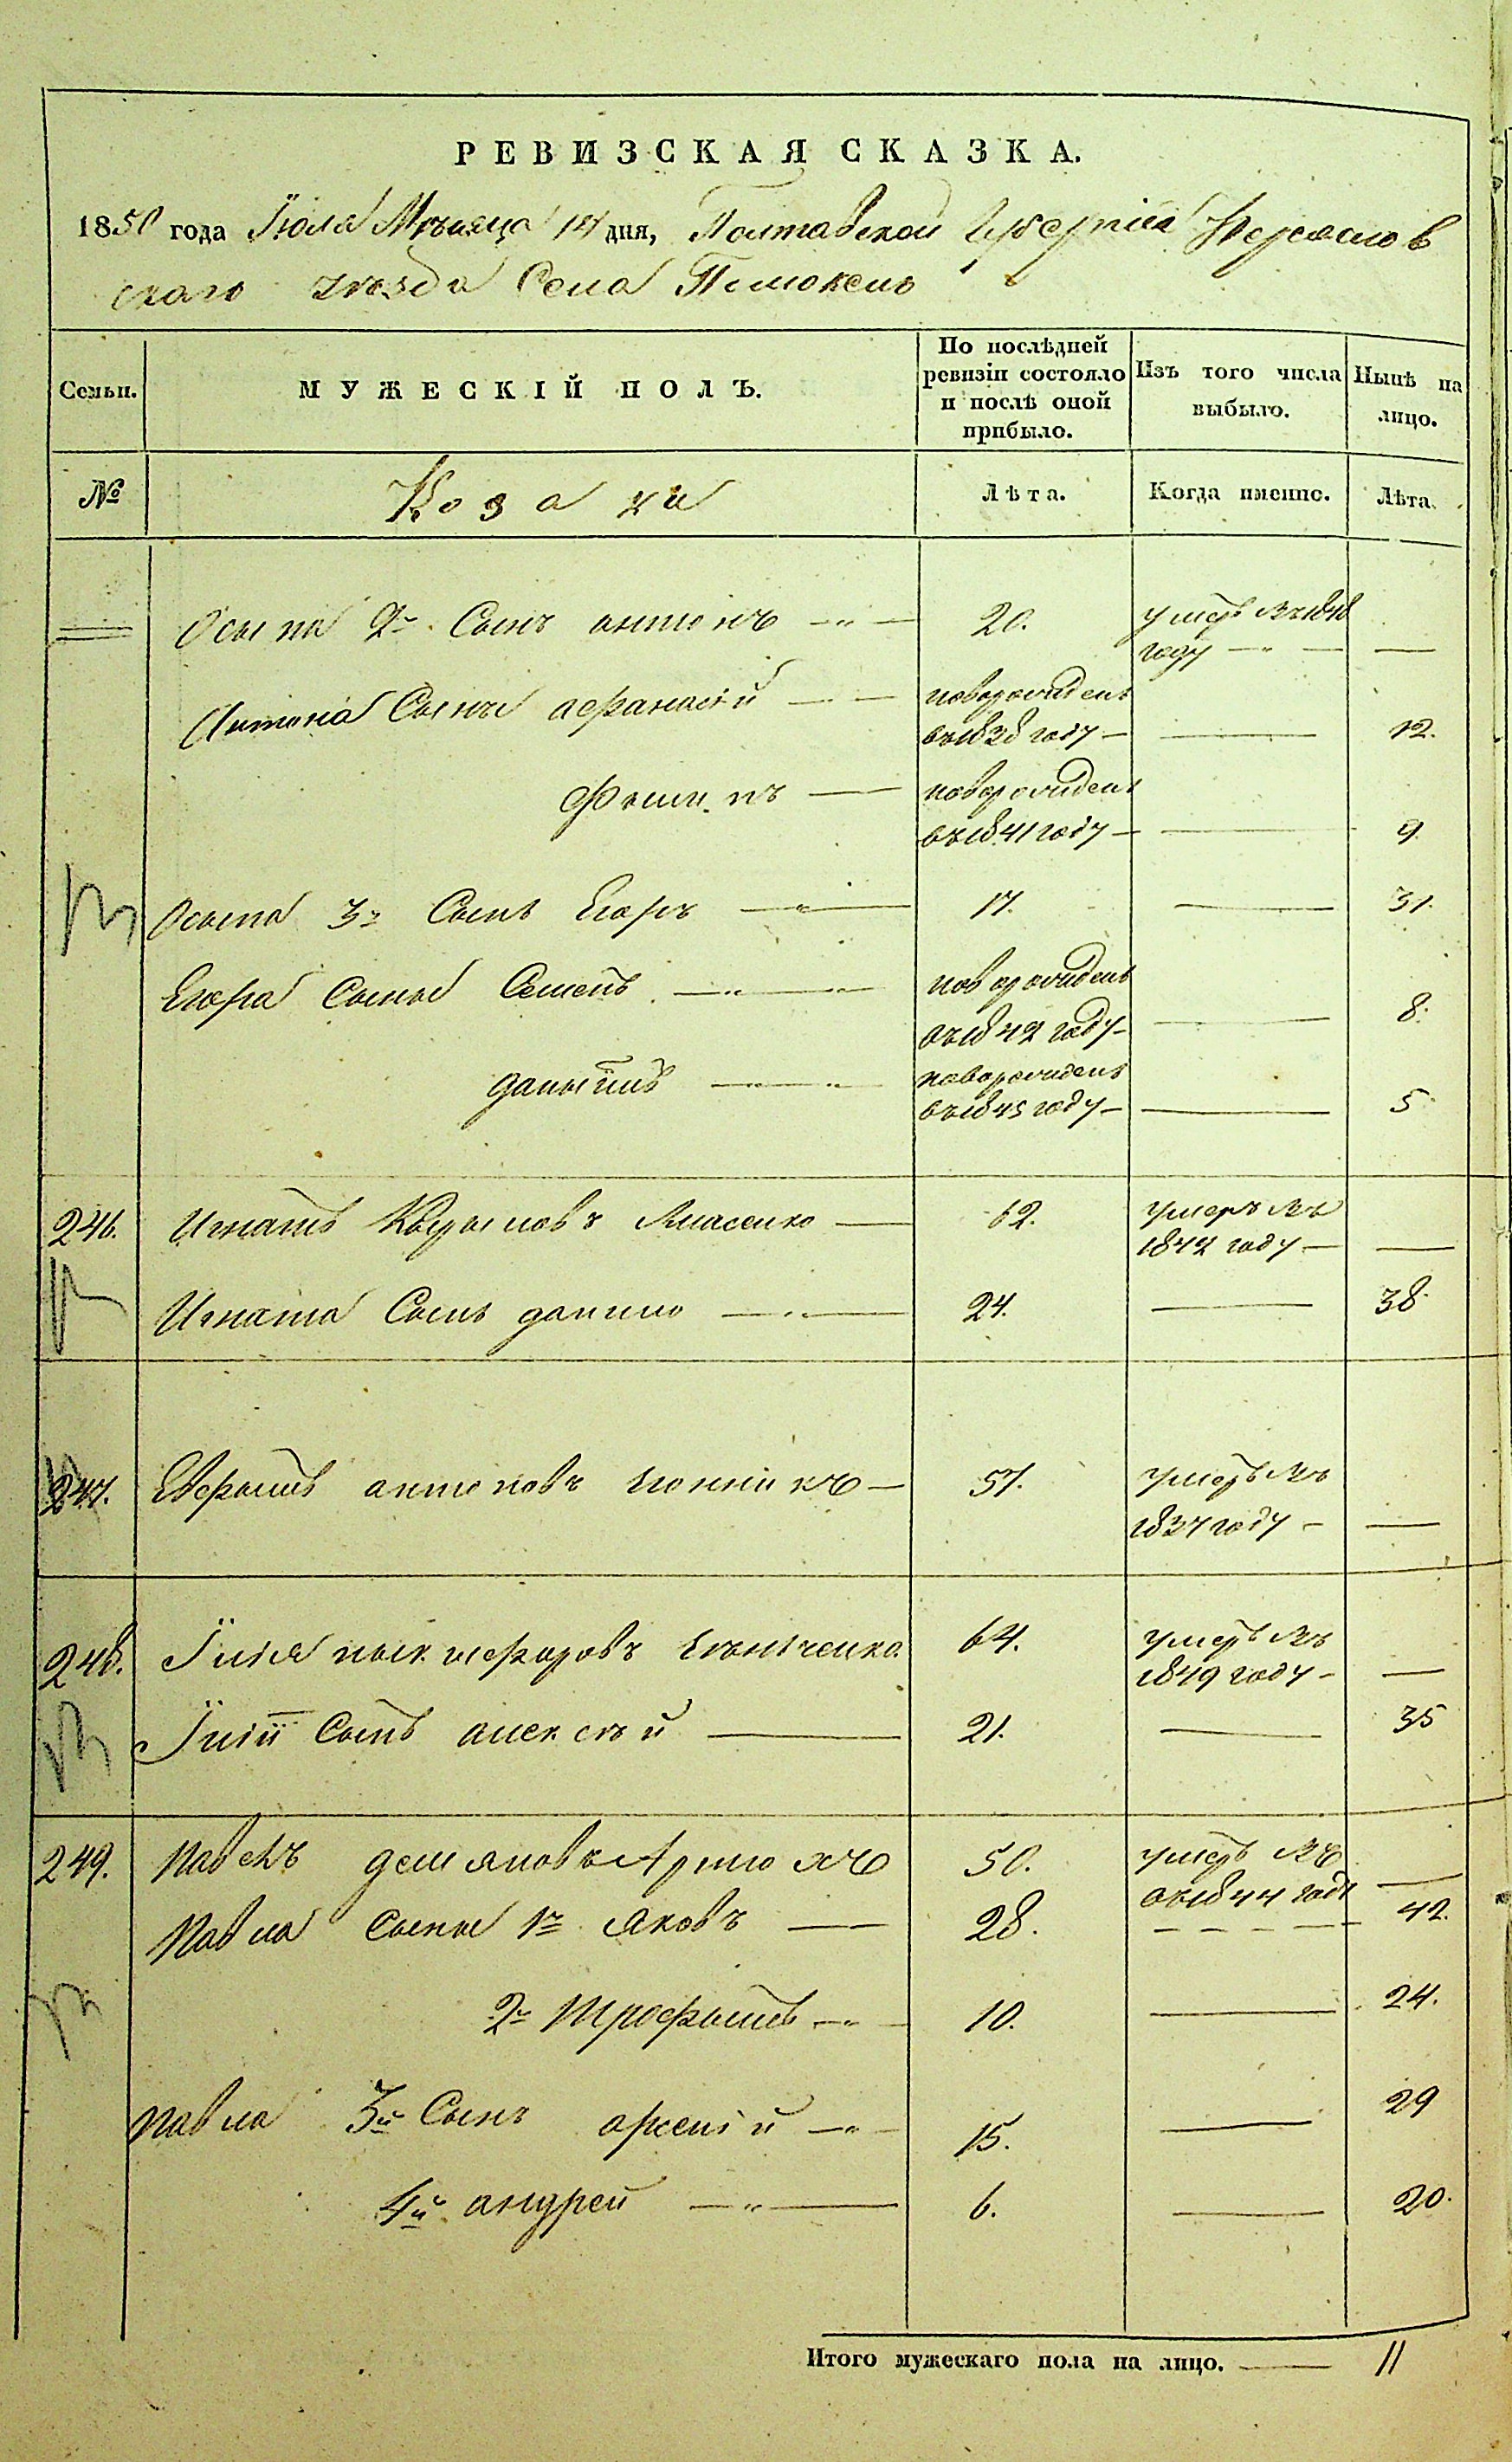 РЕВИЗСКАЯ СКАЗКА.
1850 года Июля Мѣсяца 14 дня, Полтавской Губерніи Переяслов
скаго уѣзда Села Помоклей
Семьи. МУЖЕСКІЙ ПОЛЪ. По послѣдней ревизіи состояло и послѣ оной прибыло. Изъ того числа выбыло. Нынѣ на лицо.
№ Козаки Лѣта. Когда именно. Лѣта.
Осипа 2й Сынъ антонъ 20. умеръ въ 1848
году
Антона Сыны афанасій новорожденъ
въ 1838 году 12.
Филипъ новорожденъ
въ 1841 году 9.
Осипа 3й Сынъ Егоръ 17. 31.
Егора Сыны Семенъ новорожденъ
въ 1842 году 8.
новорожденъ
въ 1845 году 5
246. Игнатъ Власенко 62. умеръ въ
1842 году
Игната Сынъ данило 24. 38.
247. антоновъ 57. умеръ въ
1837 году
248. Илія никифоровъ 64. умеръ въ
1849 году
Иліи Сынъ алексѣй 21. 35
249. Павелъ демяновъ 50. умеръ въ
въ 1844 году
Павла Сыны 1й Яковъ 28. 42.
2й Трофимъ 10. 24.
Павла 3й Сынъ арсеній 15. 29
4й андрей 6. 20.
Итого мужескаго пола на лицо. 11